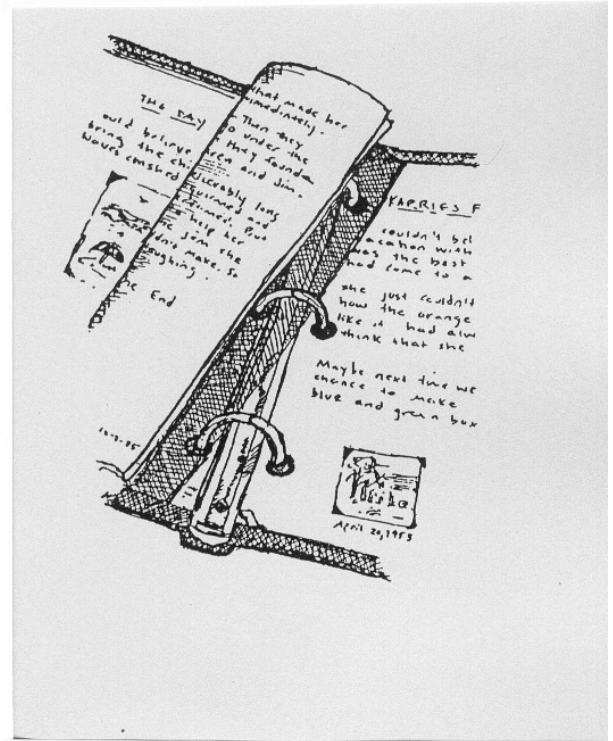 THE DAY
ould believe
bring the chi
Waves crashed
that made her
imediately.
Then they
o under the
they found a
een and dim.
lievably long
squirmed and
help her
ughing.
The End
KARRIE'S F
couldn't bel
acation with
was the best
had come to a
she just couldn't
how the orange
like it had alw
think that she
Maybe next time we
chance to make
blue and green box
April 20, 1953